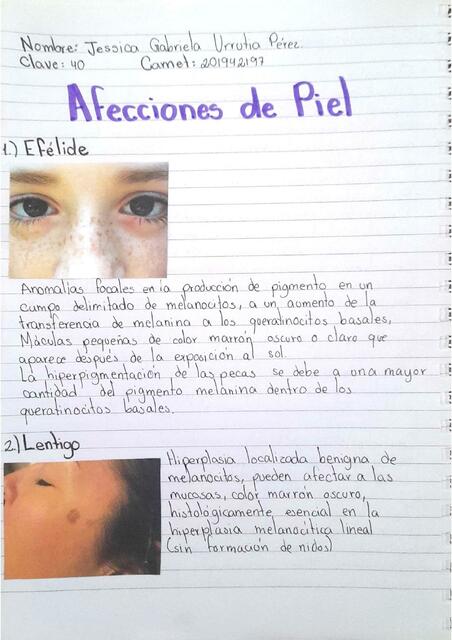 Nombre: Jessica Gabriela Urrutia Pérez.
Clave: 40 Carnet: 201942197
Afecciones de Piel
1.) Efélide
Anomalías focales en la producción de pigmento en un
campo delimitado de melanocitos, a un aumento de la
transferencia de melanina a los queratinocitos basales,
Máculas pequeñas de color marrón oscuro o claro que
aparece después de la exposición al sol.
La hiperpigmentación de las pecas se debe a una mayor
cantidad del pigmento melanina dentro de los
queratinocitos basales.
2.) Lentigo
Hiperplasia localizada benigna de
melanocitos, pueden afectar a las
mucosas, color marrón oscuro,
histológicamente esencial en la
hiperplasia melanocítica lineal
(sin formación de nidos)